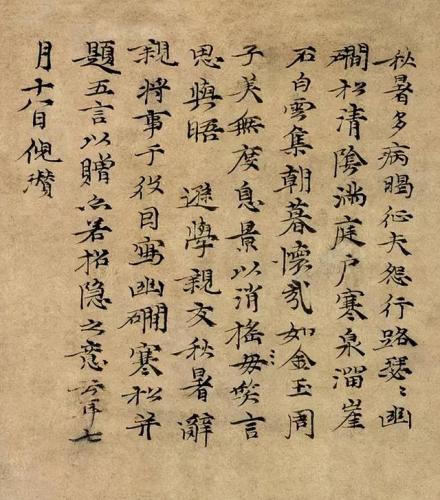 秋暑多病暍征夫怨行路瑟〻幽
磵松清陰滿庭户寒泉溜崖
石白雲集朝暮懷哉如金玉周
子美無度息景以消搖毋𥬇言
思與晤　遜學親友秋暑辭
親將事于役因寫幽磵寒松并
題五言以贈亦若招隱之意云耳七
月十八日倪瓚